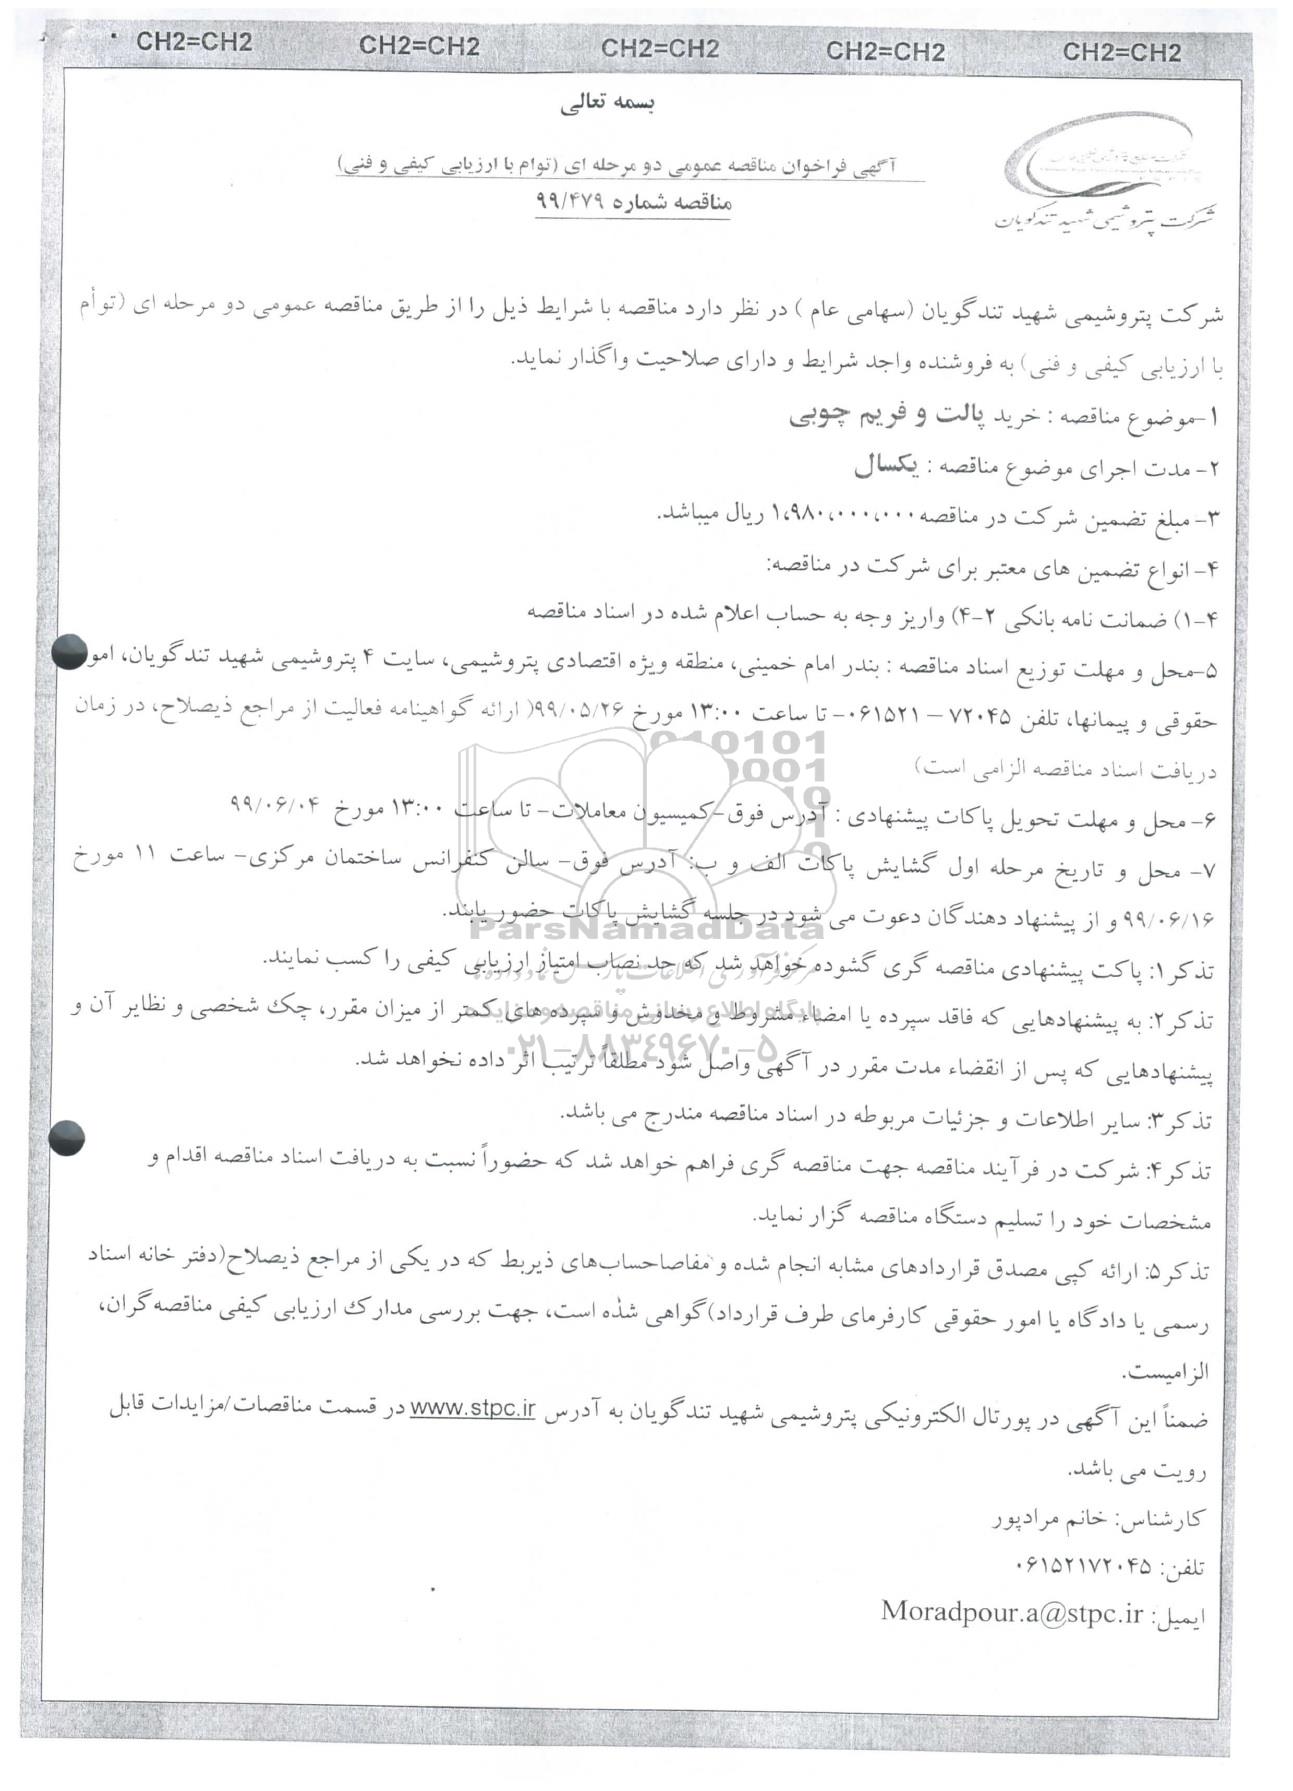 CH2=CH2 CH2=CH2 CH2=CH2 CH2=CH2 CH2=CH2
بسمه تعالی
شرکت پتروشیمی شهید تندگویان
آگهی فراخوان مناقصه عمومی دو مرحله ای (توام با ارزیابی کیفی و فنی)
مناقصه شماره ۹۹/۴۷۹
شرکت پتروشیمی شهید تندگویان (سهامی عام ) در نظر دارد مناقصه با شرایط ذیل را از طریق مناقصه عمومی دو مرحله ای (توأم
با ارزیابی کیفی و فنی) به فروشنده واجد شرایط و دارای صلاحیت واگذار نماید.
۱-موضوع مناقصه : خرید پالت و فریم چوبی
۲- مدت اجرای موضوع مناقصه : یکسال
۳- مبلغ تضمین شرکت در مناقصه ۱،۹۸۰،۰۰۰،۰۰۰ ریال میباشد.
۴- انواع تضمین های معتبر برای شرکت در مناقصه:
۴-۱) ضمانت نامه بانکی ۲-۴) واریز وجه به حساب اعلام شده در اسناد مناقصه
۵-محل و مهلت توزیع اسناد مناقصه : بندر امام خمینی، منطقه ویژه اقتصادی پتروشیمی، سایت ۴ پتروشیمی شهید تندگویان، امور
حقوقی و پیمانها، تلفن ۷۲۰۴۵ – ۰۶۱۵۲۱- تا ساعت ۱۳:۰۰ مورخ ۹۹/۰۵/۲۶( ارائه گواهینامه فعالیت از مراجع ذیصلاح، در زمان
دریافت اسناد مناقصه الزامی است)
۶- محل و مهلت تحویل پاکات پیشنهادی : آدرس فوق-کمیسیون معاملات- تا ساعت ۱۳:۰۰ مورخ ۹۹/۰۶/۰۴
۷- محل و تاریخ مرحله اول گشایش پاکات الف و ب: آدرس فوق- سالن کنفرانس ساختمان مرکزی- ساعت ۱۱ مورخ
۹۹/۰۶/۱۶ و از پیشنهاد دهندگان دعوت می شود در جلسه گشایش پاکات حضور یابند.
ParsNamadData
تذکر ۱: پاکت پیشنهادی مناقصه گری گشوده خواهد شد که حد نصاب امتیاز ارزیابی کیفی را کسب نمایند.
تذکر ۲: به پیشنهادهایی که فاقد سپرده یا امضاء مشروط و مخدوش و سپرده های کمتر از میزان مقرر، چک شخصی و نظایر آن و
۰۲۱-۸۸۳۴۹۶۷۰-۵
پیشنهادهایی که پس از انقضاء مدت مقرر در آگهی واصل شود مطلقاً ترتیب اثر داده نخواهد شد.
تذکر ۳: سایر اطلاعات و جزئیات مربوطه در اسناد مناقصه مندرج می باشد.
تذکر ۴: شرکت در فرآیند مناقصه جهت مناقصه گری فراهم خواهد شد که حضوراً نسبت به دریافت اسناد مناقصه اقدام و
مشخصات خود را تسلیم دستگاه مناقصه گزار نماید.
تذکر ۵: ارائه کپی مصدق قراردادهای مشابه انجام شده و مفاصاحساب‌های ذیربط که در یکی از مراجع ذیصلاح(دفتر خانه اسناد
رسمی یا دادگاه یا امور حقوقی کارفرمای طرف قرارداد)گواهی شده است، جهت بررسی مدارک ارزیابی کیفی مناقصه‌گران،
الزامیست.
ضمناً این آگهی در پورتال الکترونیکی پتروشیمی شهید تندگویان به آدرس www.stpc.ir در قسمت مناقصات/مزایدات قابل
رویت می باشد.
کارشناس: خانم مرادپور
تلفن: ۰۶۱۵۲۱۷۲۰۴۵
ایمیل: Moradpour.a@stpc.ir